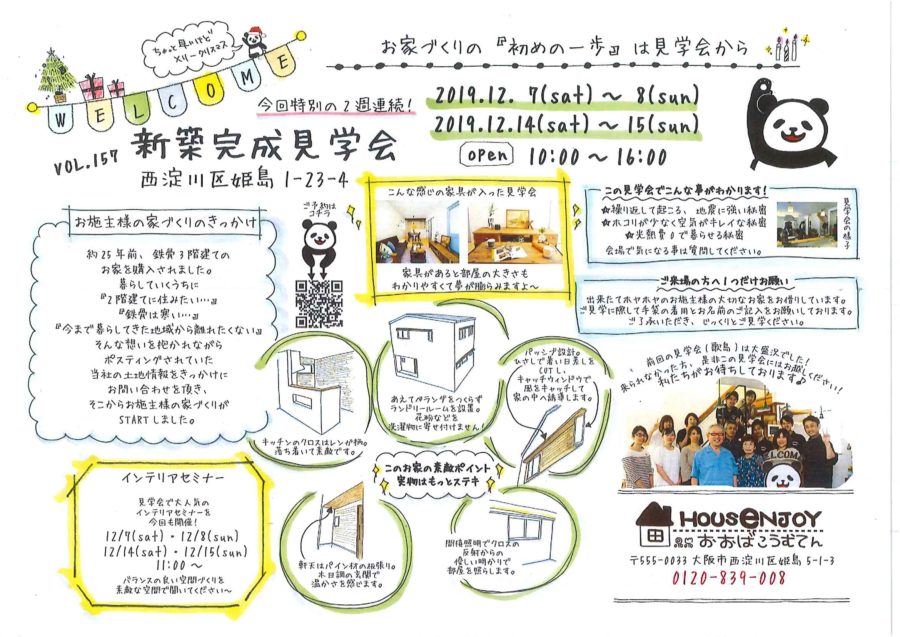 ちょっと早いけど
メリークリスマス
WELCOME
お家づくりの『初めの一歩』は見学会から
今回特別の2週連続！
2019.12. 7(sat)～ 8(sun)
2019.12.14(sat)～15(sun)
open 10:00～16:00
VOL.157 新築完成見学会
西淀川区姫島 1-23-4
お施主様の家づくりのきっかけ
約25年前、鉄骨3階建ての
お家を購入されました。
暮らしていくうちに
『2階建てに住みたい…』
『鉄骨は寒い…』
『今まで暮らしてきた地域から離れたくない』
そんな想いを抱かれながら
ポスティングされていた
当社の土地情報をきっかけに
お問い合わせを頂き、
そこからお施主様の家づくりが
STARTしました。
ご予約は
コチラ
こんな感じの家具が入った見学会
家具があると部屋の大きさも
わかりやすくて夢が膨らみますよ～
この見学会でこんな事がわかります！
★繰り返して起こる、地震に強い秘密
★ホコリが少なく空気がキレイな秘密
★光熱費0で暮らせる秘密
会場で気になる事は質問してください。
見学会の様子
ご来場の方へ1つだけお願い
出来たてホヤホヤのお施主様の大切なお家をお借りしています。
ご見学に際して手袋の着用とお名前のご記入をお願いしております。
ご了承いただき、じっくりとご見学ください。
キッチンのクロスはレンガ柄。
落ち着いて素敵です。
あえてバランダをつくらず
ランドリールームを設置。
花粉などを
洗濯物に寄せ付けません！
パッシブ設計。
ひさしで暑い日差しを
CUTし、
キャッチウィンドウで
風をキャッチして
家の中へ誘導します。
前回の見学会(歌島)は大盛況でした！
来られなかった方、是非この見学会にはお越しください！
私たちがお待ちしております♪
このお家の素敵ポイント
実物はもっとステキ
インテリアセミナー
見学会で大人気の
インテリアセミナーを
今回も開催！
12/7(sat)・12/8(sun)
12/14(sat)・12/15(sun)
11:00～
バランスの良い空間づくりを
素敵な空間で聞いてください～
軒天はパイン材の板張り。
木目調の玄関で
温かさを感じます。
間接照明でクロスの
反射からの
優しい明かりで
部屋を照らします。
WELCOME
HOUSENJOY
おおばこうむてん
〒555-0033 大阪市西淀川区姫島 5-1-3
0120-839-008